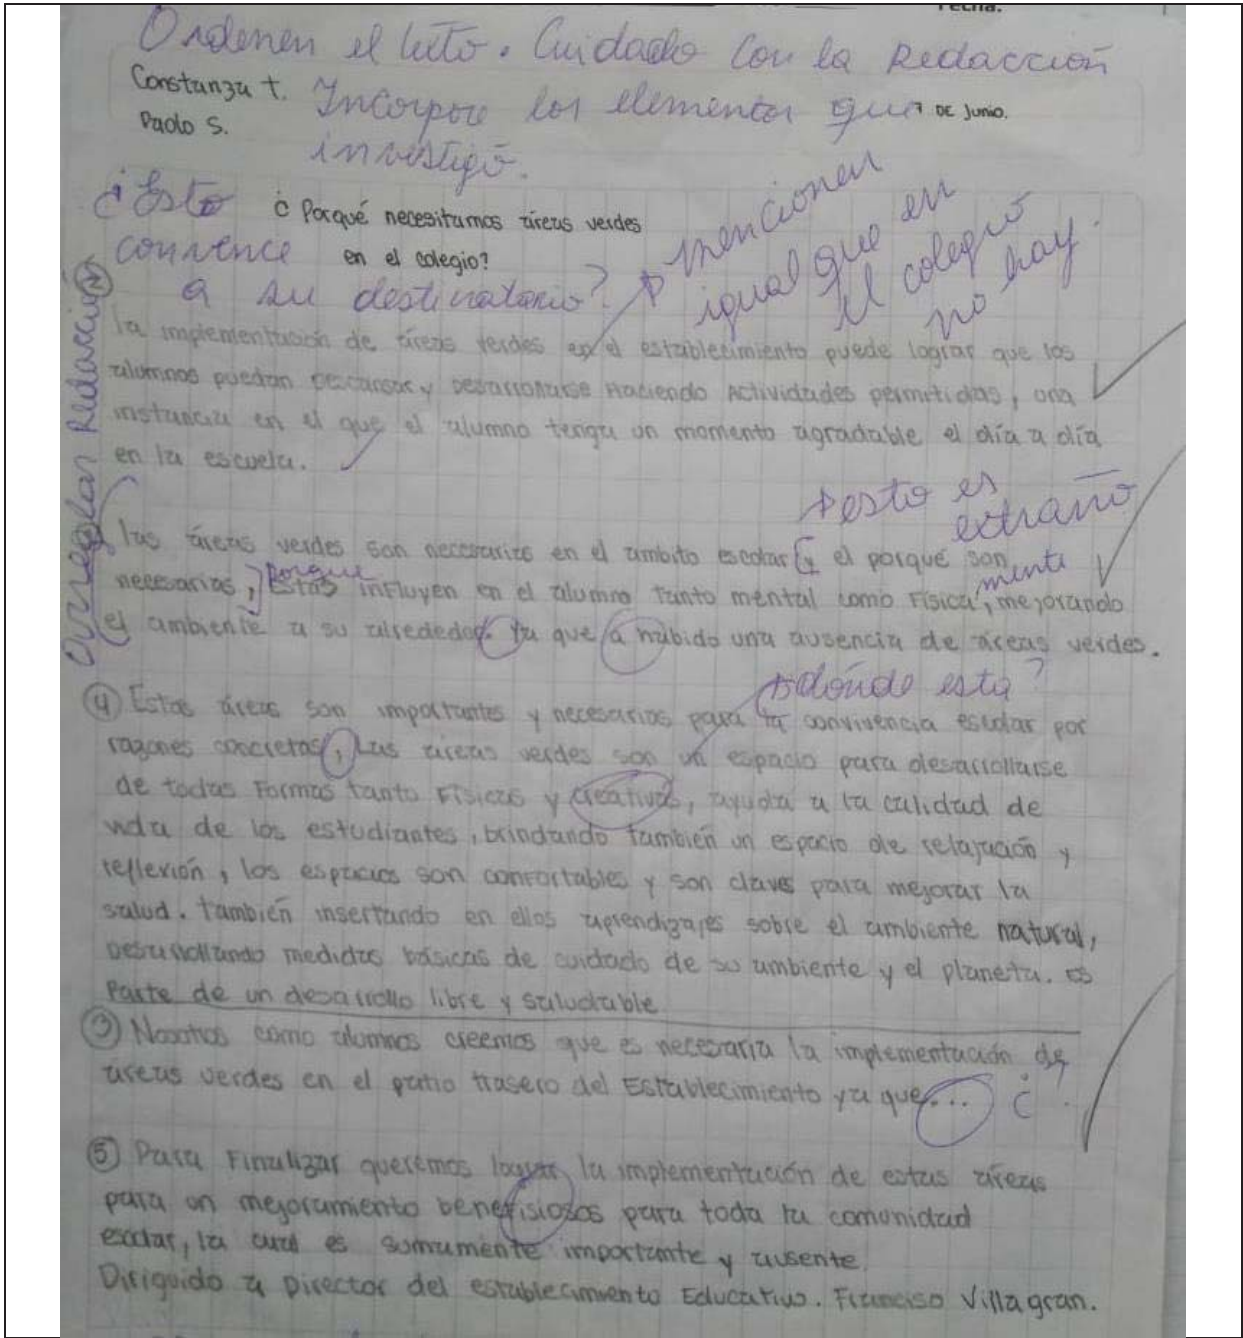 Fecha:
Ordenen el texto. Cuidado con la Redacción
Constanza t.
Incorpore los elementos que
7 DE Junio.
Paolo S.
investigó.
¿Esto
convence
a su destinatario?
¿Porqué necesitamos áreas verdes
en el colegio?
mencionen
igual que en
el colegio
no hay.
Arreglar Redacción
2
la implementación de áreas verdes en el establecimiento puede lograr que los
alumnos puedan Descansar y Desarrollarse Haciendo Actividades permitidas, una
instancia en el que el alumno tenga un momento agradable el día a día
en la escuela.
esto es
extraño
las áreas verdes son necesarias en el ambito escolar y el porqué son
necesarias, Estas influyen en el alumno tanto mental como Física, mejorando
Porque
mente
el ambiente a su alrededor. Ya que a habido una ausencia de áreas verdes.
dónde está?
④ Estas áreas son importantes y necesarias para la convivencia escolar por
razones concretas, Las áreas verdes son un espacio para desarrollarse
de todas Formas tanto Físicas y creativas, ayuda a la calidad de
vida de los estudiantes, brindando también un espacio de relajación y
reflexión, los espacios son confortables y son claves para mejorar la
salud. también insertando en ellos aprendizajes sobre el ambiente natural,
Desarrollando medidas básicas de cuidado de su ambiente y el planeta. es
Parte de un desarrollo libre y saludable
③ Nosotros como alumnos creemos que es necesaria la implementación de
áreas verdes en el patio trasero del Establecimiento ya que... ¿?
⑤ Para Finalizar queremos lograr la implementación de estas áreas
para un mejoramiento benefisiosos para toda la comunidad
escolar, la cual es sumamente importante y ausente.
Diriguido a Director del establecimiento Educativo. Franciso Villagran.